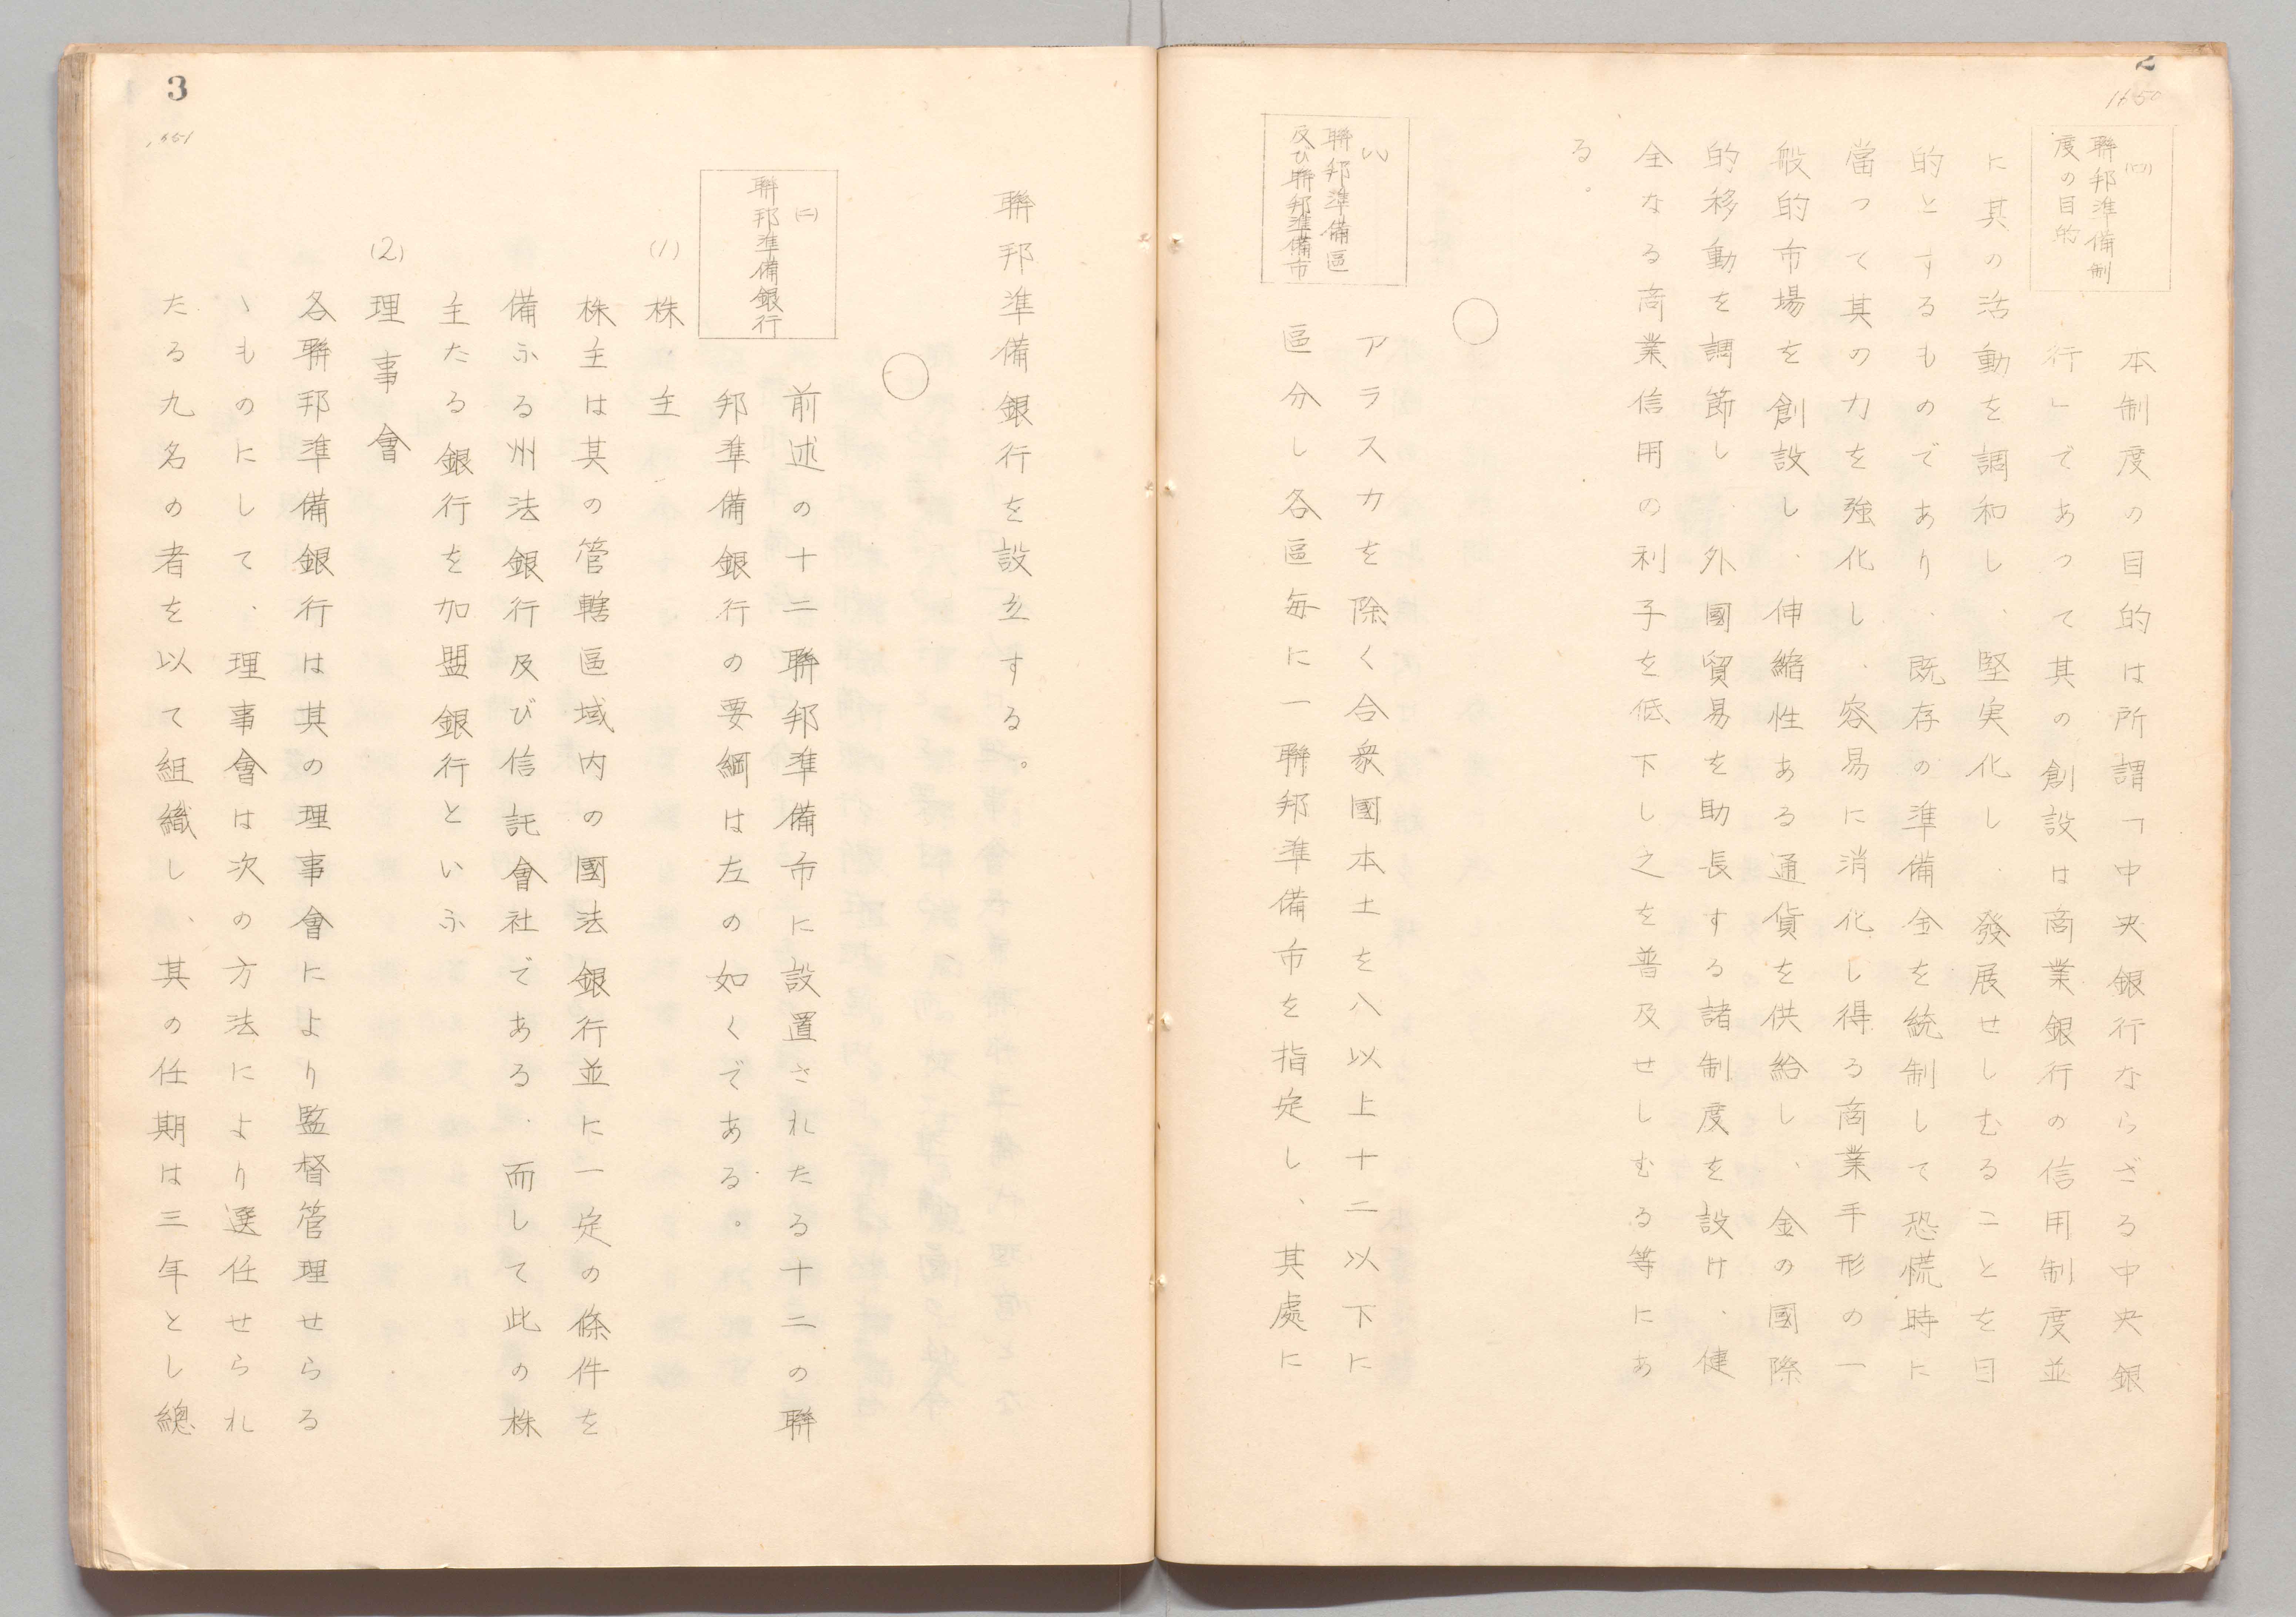 2
1450
(四)
聯邦準備制
度の目的
本制度の目的は所謂「中央銀行ならざる中央銀
行」であつて其の創設は商業銀行の信用制度並
に其の活動を調和し、堅実化し、發展せしむることを目
的とするものであり、既存の準備金を統制して恐慌時に
當つて其の力を強化し、容易に消化し得る商業手形の一
般的市場を創設し、伸縮性ある通貨を供給し、金の國際
的移動を調節し、外國貿易を助長する諸制度を設け、健
全なる商業信用の利子を低下し之を普及せしむる等にあ
る。
○
聯邦準備區
及び聯邦準備市
アラスカを除く合衆國本土を八以上十二以下に
區分し各區毎に一聯邦準備市を指定し、其處に
3
聯邦準備銀行を設立する。
○
(二)
聯邦準備銀行
前述の十二聯邦準備市に設置されたる十二の聯
邦準備銀行の要綱は左の如くである。
(1) 株主
株主は其の管轄區域内の國法銀行並に一定の條件を
備ふる州法銀行及び信託會社である、而して此の株
主たる銀行を加盟銀行といふ
(2) 理事會
各聯邦準備銀行は其の理事會により監督管理せらる
ゝものにして、理事會は次の方法により選任せられ
たる九名の者を以て組織し、其の任期は三年とし總